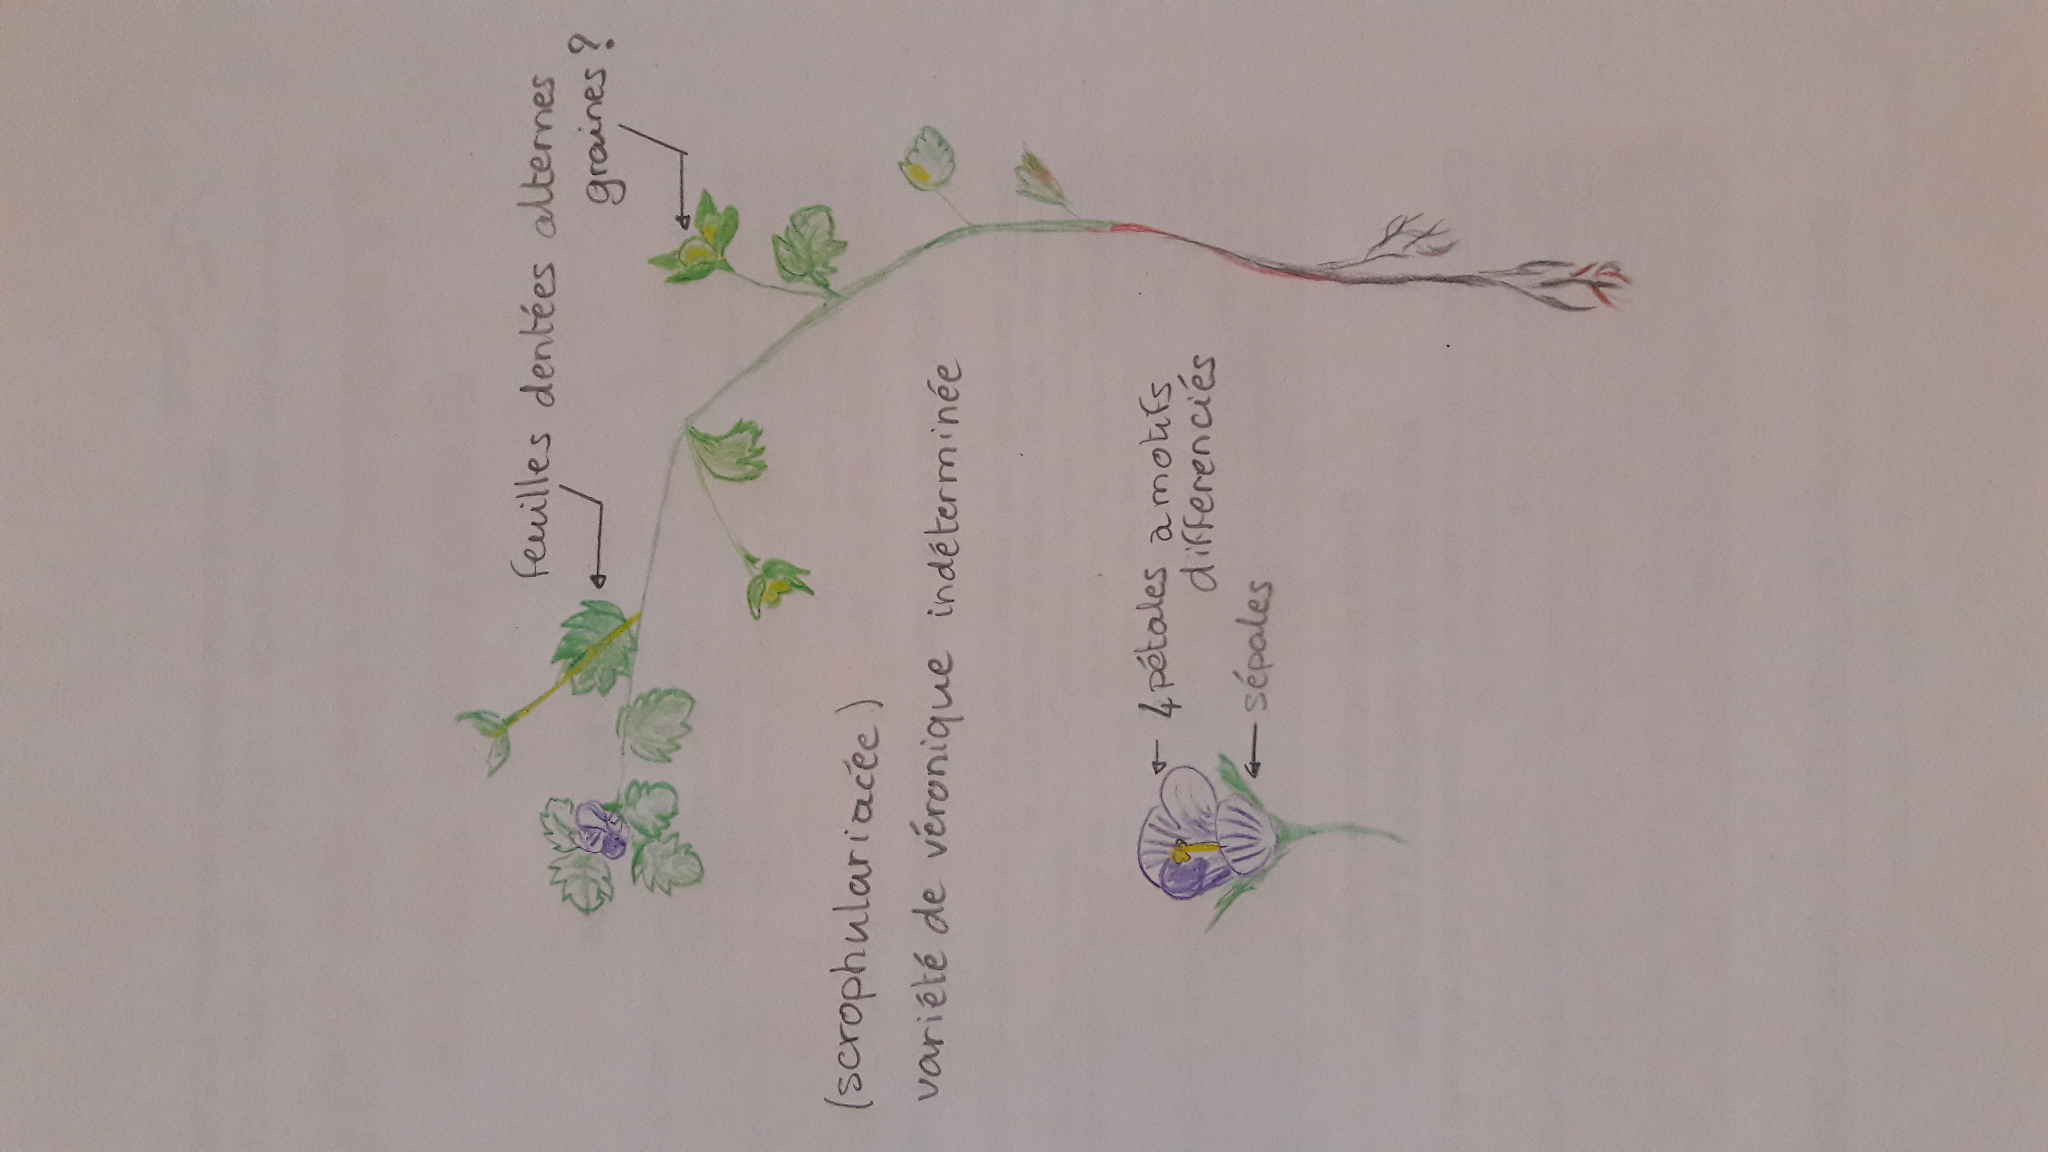 feuilles dentées alternes
graines?
(scrophulariacée)
variété de véronique indéterminée
4 pétales a motifs
differenciés
sépales